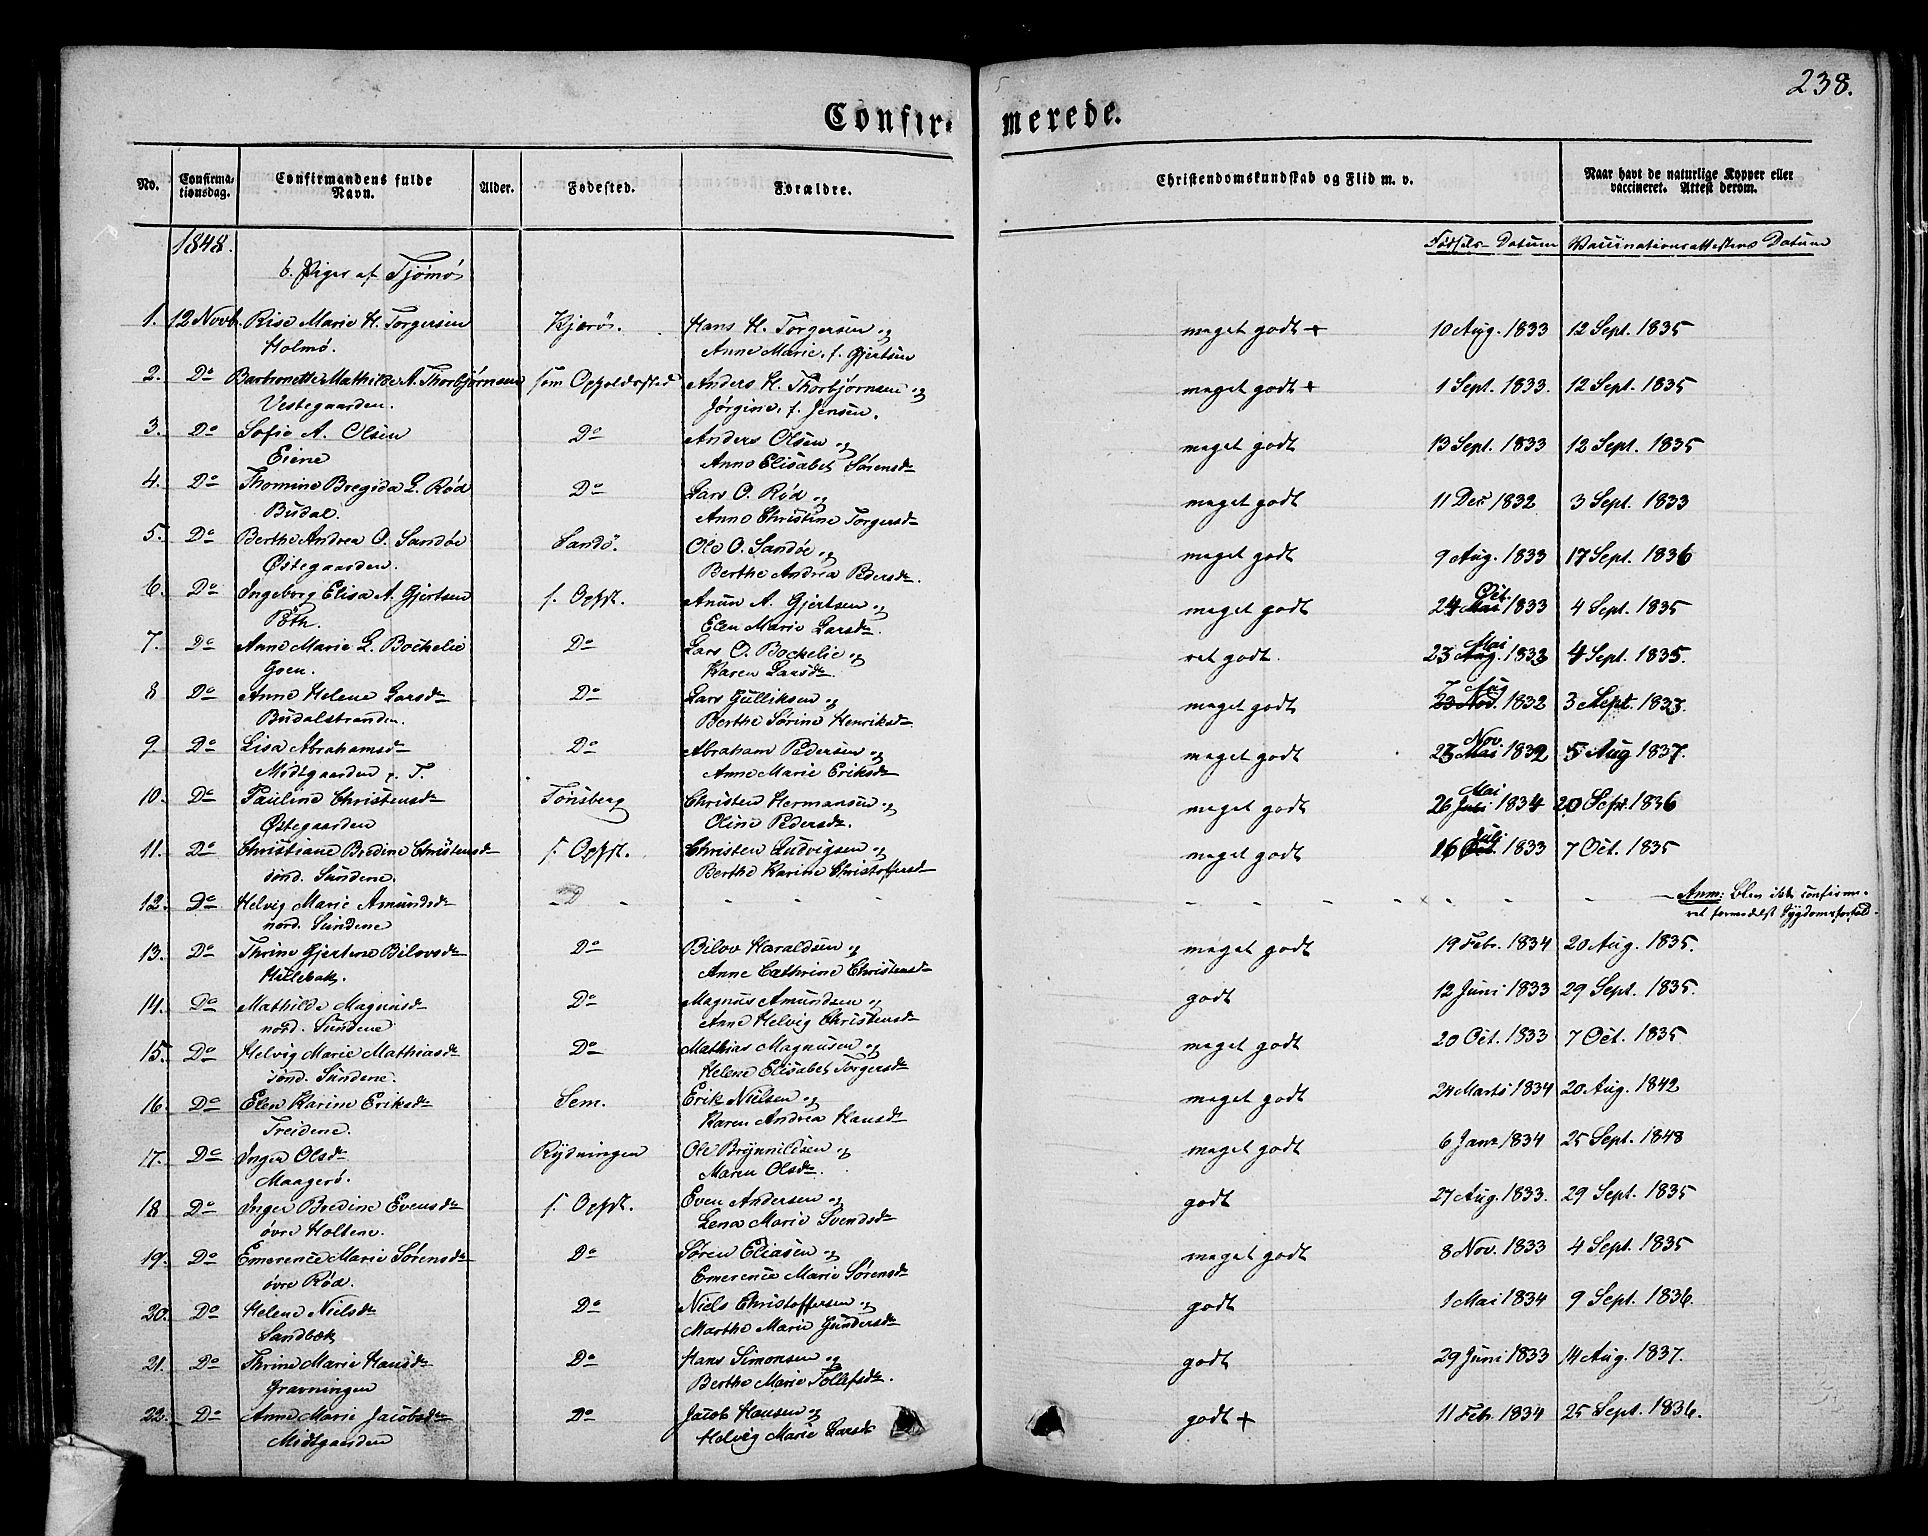 238.
Confirmerede.
No. Confirmationsdag. Confirmandens fulde Navn. Alder. Fødested. Forældre. Christendomskundskab og Flid m. v. Naar havt de naturlige Kopper eller vaccineret. Attest derom.
1848. Fødsels-Datum Vaccinationsattestens Datum
b. Piger af Tjømø
1. 12 Novb. Rise Marie H. Torgersen Kjærø. Hans H. Torgersen og meget godt + 10 Aug. 1833 12 Sept. 1835
Holmø. Anne Marie, f. Gjertsen
2. Do Barbonette Mathilde A. Thorbjørnsen som Opholdssted Anders H. Thorbjørnsen og meget godt + 1 Sept. 1833. 12 Sept. 1835
Vestegaarden. Jørgine, f. Jensen.
3. Do Sofie A. Olsen Do Anders Olsen og meget godt 13 Sept. 1833 12 Sept. 1835
Eiene Anne Elisabet Sørensdr
4. Do Thomine Bregida L. Rød Do Lars O. Rød og meget godt 11 Dec 1832 3 Sept. 1833
Budal. Anne Christine Torgersdr
5. Do Berthe Andrea O. Sandøe Sandø. Ole O. Sandøe og meget godt 9 Aug. 1833 17 Sept. 1836
Østegaarden. Berthe Andrea Pedersdr.
6. Do Ingeborg Elisa A. Gjertsen s. Opst. Anun A. Gjertsen og meget godt 24 Mai Oct. 1833 4 Sept. 1835
Pøth. Elen Marie Larsdr.
7. Do Anne Marie L. Bockelie Do Lars O. Bockelie og ret godt. 23 Aug. Mai 1833 4 Sept. 1835.
Goen. Karen Larsdr.
8 Do Anne Helene Larsdr Do Lars Gulliksen og meget godt 7 Aug 1832 3 Sept. 1833.
Budalstranden. Berthe Sørine Henriksdr
9. Do Lisa Abrahamsdr Do Abraham Pedersen og meget godt 23 Mai Nov. 1832 5 Aug 1837.
Midtgaarden p. T. Anne Marie Eriksdr
10. Do Pauline Christensdr Tønsberg Christen Hermansen og meget godt 26 Juli Mai 1834 20 Sept. 1836
Østegaarden Oline Pedersdr.
11. Do Christiane Bredine Christensdr s. Opst. Christen Ludvigsen og meget godt 16 Juli 1833 7 Oct. 1835
sønd. Sundene. Berthe Karine Christoffersdr
12. Do Helvig Marie Amundsdr D Anm: Blev ikke confirme-
nord. Sundene ret formedelst Sygdomsforfald.
13. Do Thrine Gjertine Bilovsdr Do Bilov Haraldsen og meget godt 19 Febr. 1834 20 Aug. 1835.
Hullebak. Anne Cathrine Christensdr
14. Do Mathilde Magnusdr Do Magnus Amundsen og godt 12 Juni 1833 29 Sept. 1835.
nord. Sundene Anne Helvig Christensdr
15. Do Helvig Marie Mathiasdr Do Mathias Magnusen og meget godt 20 Oct. 1833 7 Oct. 1835
sønd. Sundene. Helene Elisabet Torgersdr
16 Do Elen Karine Eriksdr Sem. Erik Nielsen og meget godt 24 Marts 1834 20 Aug. 1842
Treidene. Karen Andrea Hansdr
17. Do Inger Olsdr Rydningen Ole Brynnildsen og meget godt 6 Janr 1834 25 Sept. 1848
Maagerø. Maren Olsdr.
18 Do Inger Bredine Evensdr s. Opst. Even Andersen og godt 27 Aug. 1833. 29 Sept. 1835
øvre Holtene. Lena Marie Svendsdr
19. Do Emerence Marie Sørensdr Do Søren Eliasen og meget godt 8 Nov. 1833 4 Sept. 1835
øvre Rød. Emerence Marie Sørensdr
20. Do Helene Nielsdr Do Niels Christoffersen og godt 1 Mai 1834 9 Sept. 1836.
Sandbæk Marthe Marie Gundersdr
21. Do Thrine Marie Hansdr Do Hans Simonsen og godt 29 Juni 1833 14 Aug. 1837.
Gravningen Berthe Marie Tollefsdr.
22. Do Anne Marie Jacobsdr Do Jacob Hansen og godt + 11 Febr. 1834 25 Sept. 1836.
Midtgaarden Helvig Marie Larsdr